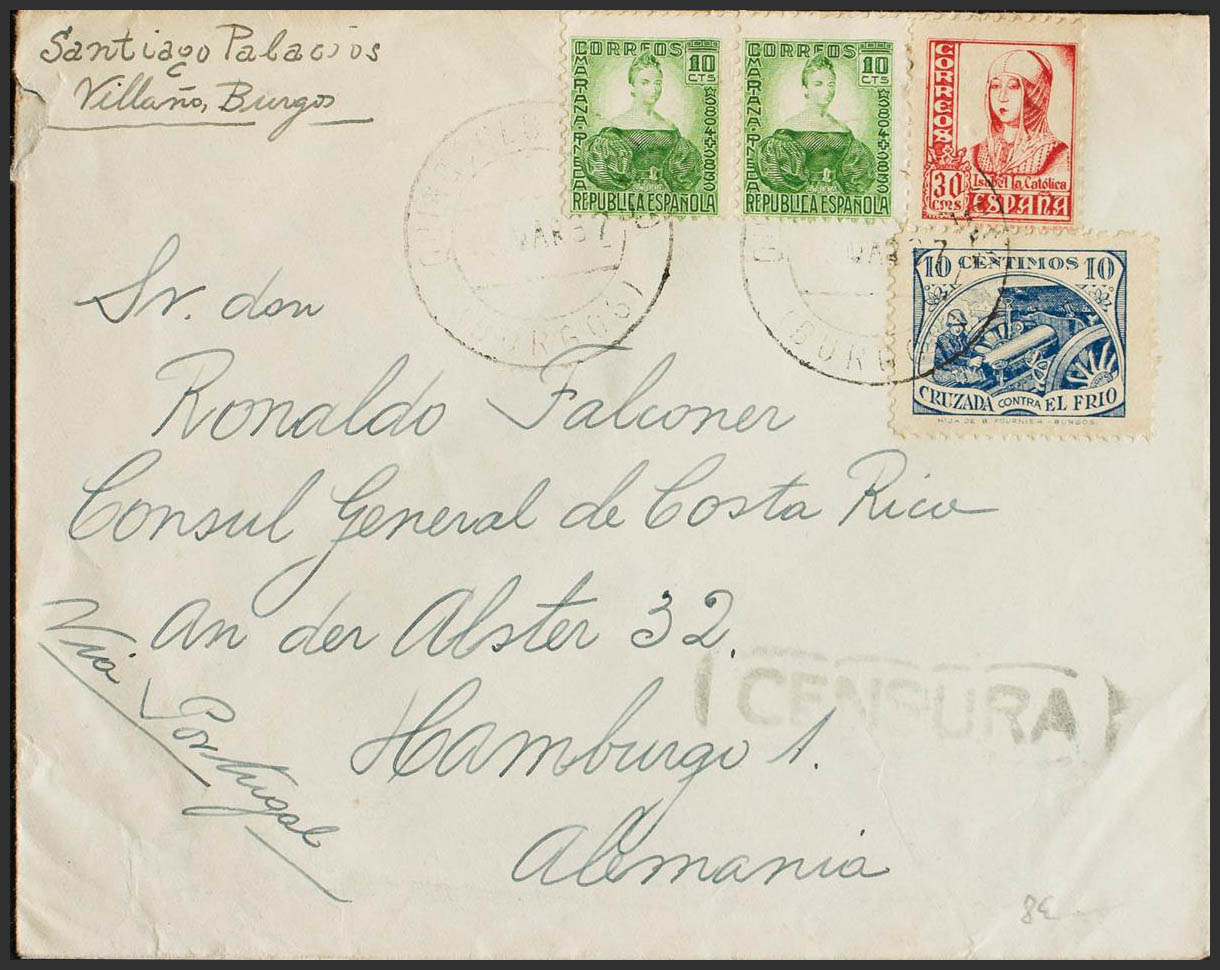 Santiago Palacios
Villaño, Burgos
CORREOS
10
CTS
MARIANA·PINEDA
REPUBLICA ESPAÑOLA
CORREOS
10
CTS
MARIANA·PINEDA
REPUBLICA ESPAÑOLA
CORREOS
30
CMS
Isabel la Católica
ESPAÑA
10 CENTIMOS 10
CRUZADA CONTRA EL FRIO
HIJA DE B. FOURNIER - BURGOS
MAR 37
(BURGOS)
MAR 37
(BURGOS)
Sr. don
Ronaldo Falconer
Consul General de Costa Rica
An der Alster 32.
Hamburgo 1.
Alemania
Via Portugal
CENSURA